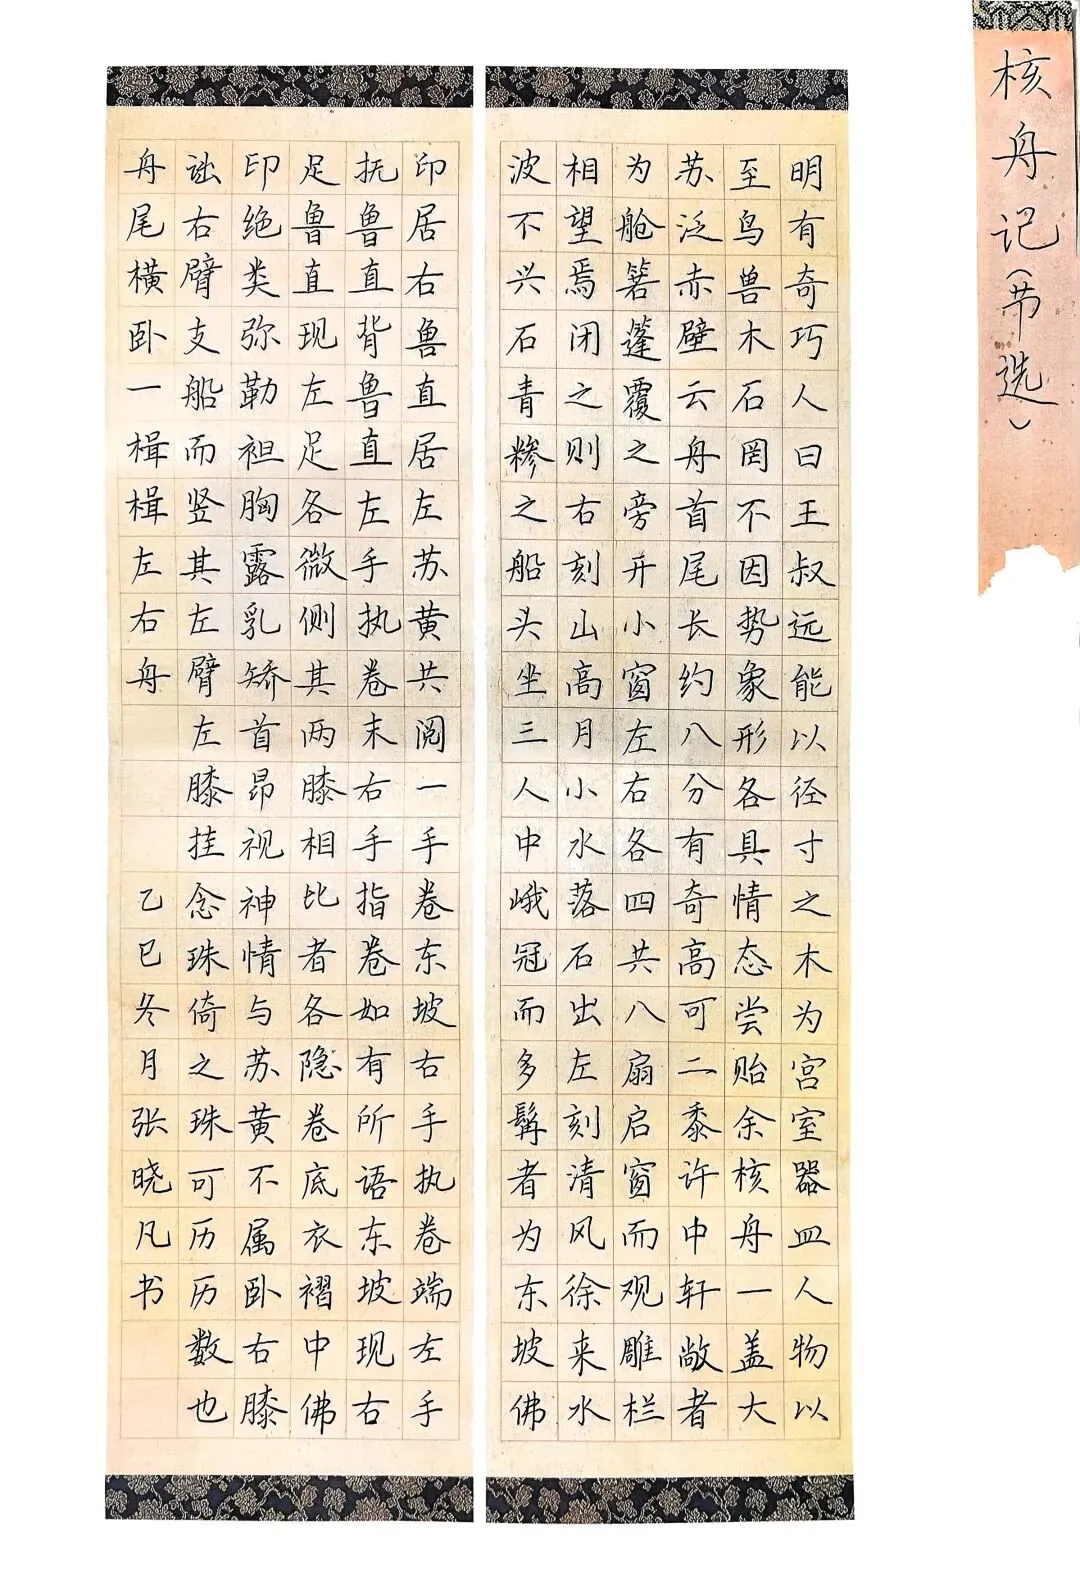 核舟记(节选)
明有奇巧人曰王叔远能以径寸之木为宫室器皿人物以
至鸟兽木石罔不因势象形各具情态尝贻余核舟一盖大
苏泛赤壁云舟首尾长约八分有奇高可二黍许中轩敞者
为舱箬篷覆之旁开小窗左右各四共八扇启窗而观雕栏
相望焉闭之则右刻山高月小水落石出左刻清风徐来水
波不兴石青糁之船头坐三人中峨冠而多髯者为东坡佛
印居右鲁直居左苏黄共阅一手卷东坡右手执卷端左手
抚鲁直背鲁直左手执卷末右手指卷如有所语东坡现右
足鲁直现左足各微侧其两膝相比者各隐卷底衣褶中佛
印绝类弥勒袒胸露乳矫首昂视神情与苏黄不属卧右膝
诎右臂支船而竖其左臂左膝挂念珠倚之珠可历历数也
舟尾横卧一楫楫左右舟
乙巳冬月张晓凡书